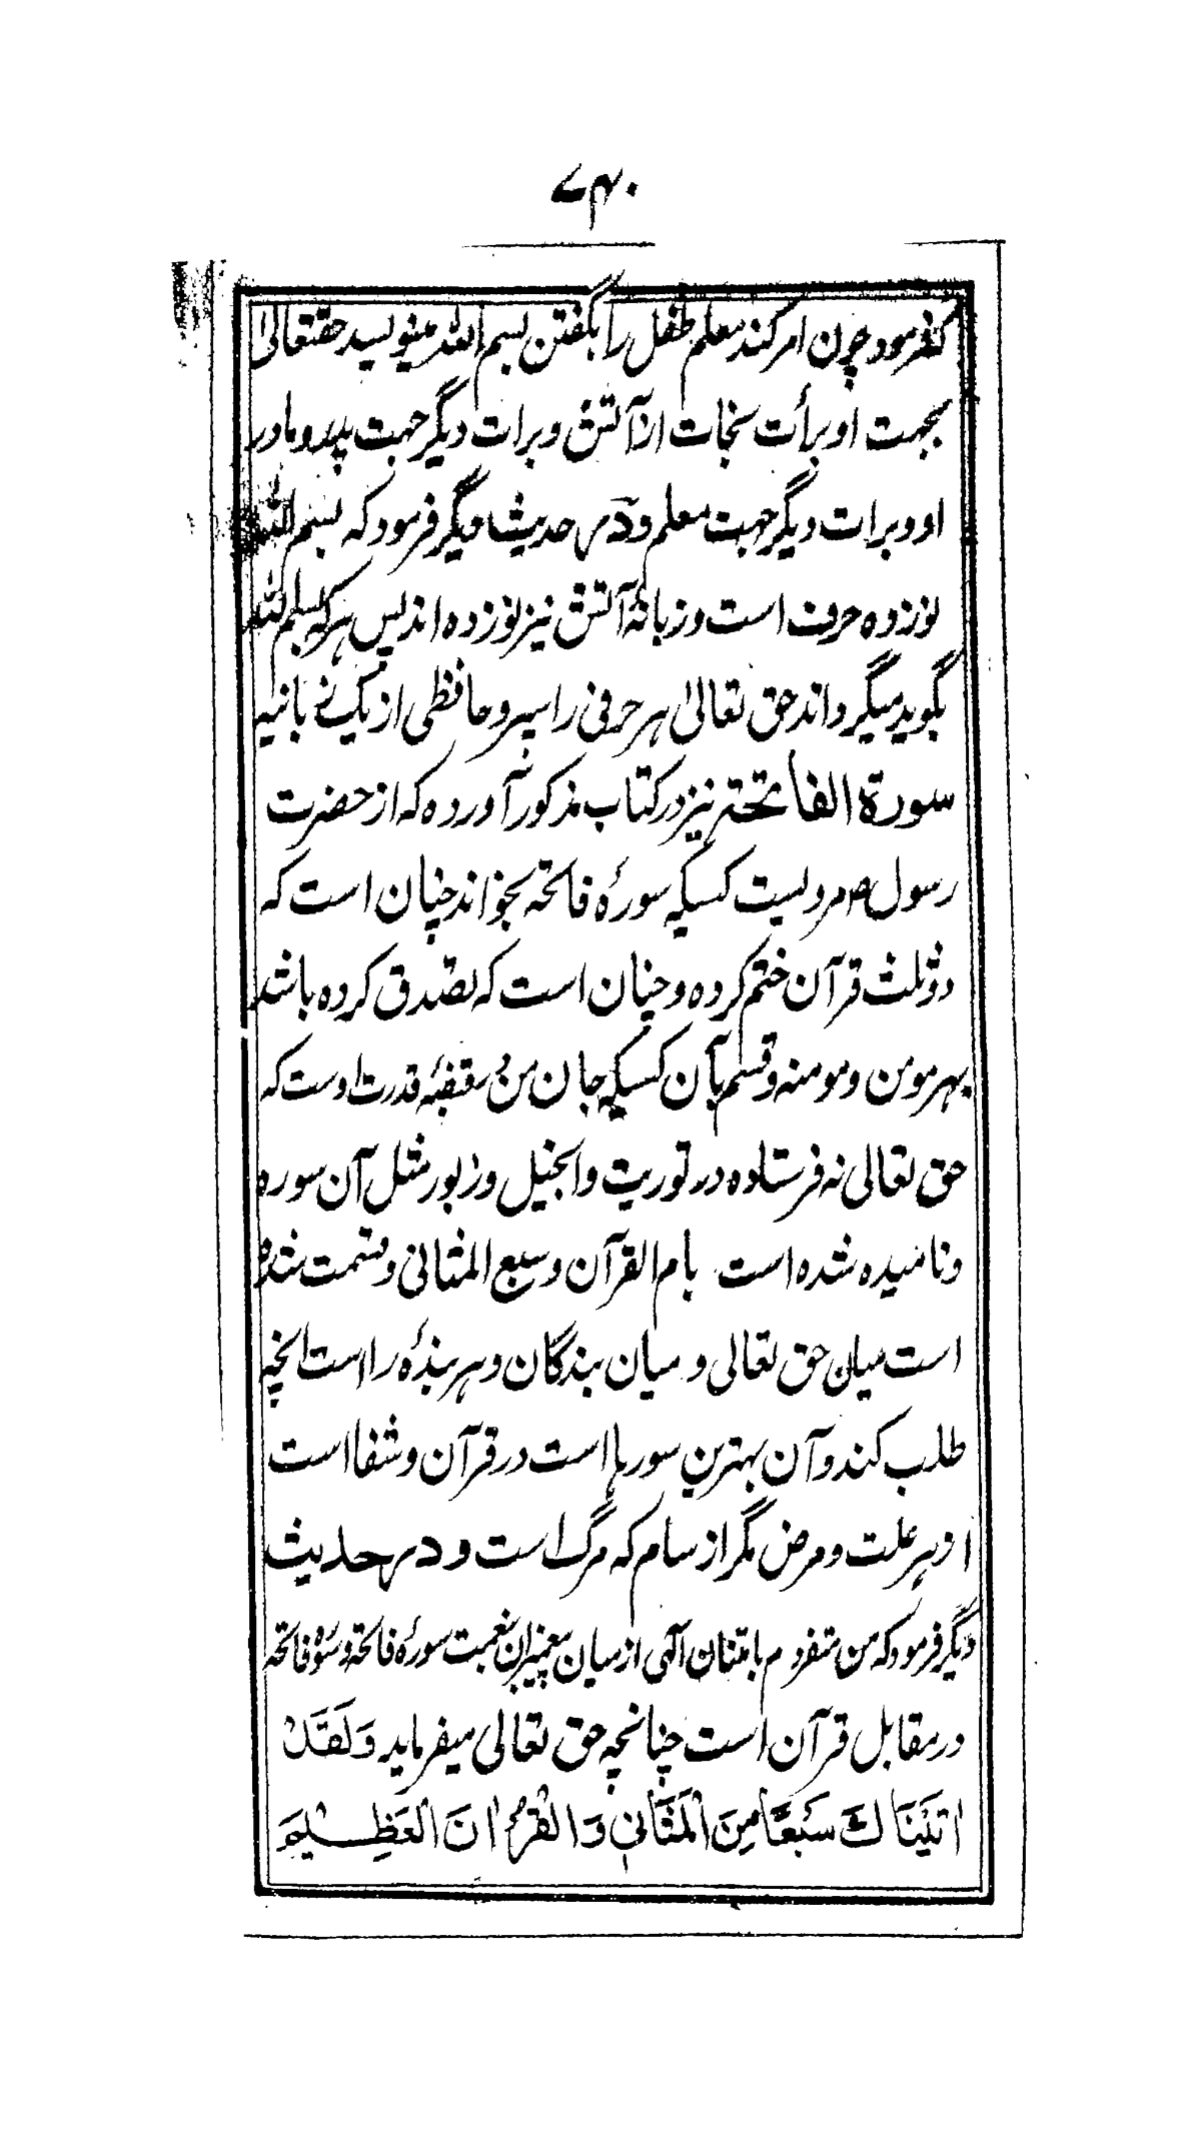 ۷۴۰
که فرمود چون امر کند معلم طفل را بگفتن بسم الله مینویسد حقتعالیٰ
بجهت او برأت نجات از آتش و برات دیگر جهت پدر و مادر
او و برات دیگر جهت معلم و در حدیث دیگر فرمود که بسم الله
نوزده حرف است و زبانۀ آتش نیز نوزده اند پس هر که بسم الله
بگوید میگرداند حق تعالیٰ هر حرفی را سپر و حافظی از یک زبانیه
سورة الفاتحة نیز در کتاب مذکور آورده که از حضرت
رسول ص مرویست کسیکه سورۀ فاتحه بخواند چنان است که
دو ثلث قرآن ختم کرده و چنان است که تصدق کرده باشد
بهر مومن و مومنه و قسم بآن کسیکه جان من بقبضۀ قدرت اوست که
حق تعالی نه فرستاده در توریت و انجیل و زبور مثل آن سوره
و نامیده شده است بام القرآن و سبع المثانی و قسمت شده
است میان حق تعالی و میان بندگان و هر بندۀ را است انچه
طلب کند و آن بهترین سورها است در قرآن و شفا است
از هر علت و مرض مگر از سام که مرگ است و در حدیث
دیگر فرمود که من متفردم بامتنان الهی از میان پیغمبران بنعمت سورۀ فاتحه و سورۀ فاتحه
در مقابل قرآن است چنانچه حق تعالی میفرماید وَلَقَدْ
اتَیْنَاكَ سَبْعًا مِنَ الْمَثَانِی وَالْقُرْاٰنَ الْعَظِیْمَ